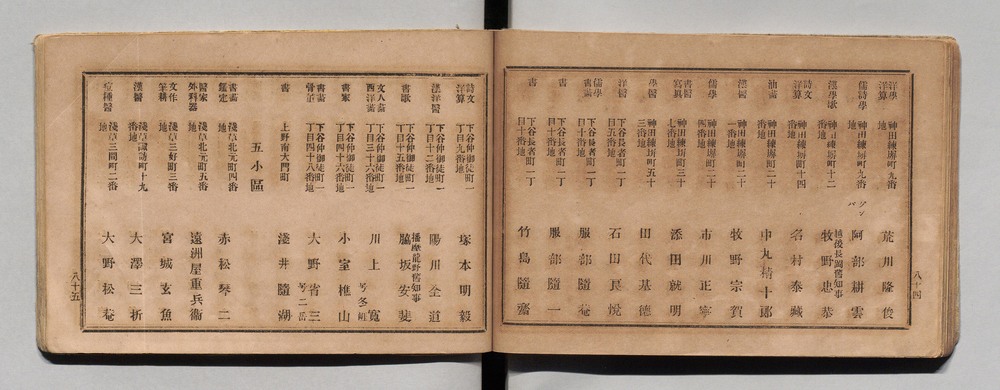 洋學 洋算 神田練塀町九番地 荒川隆俊
儒詩學 神田練塀町九番地 阿部耕雲
漢學歌 神田練塀町十二番地 越後長岡舊知事 牧野忠恭
詩文 洋算 神田練塀町十四番地 名村泰藏
油畵 神田練塀町二十 中丸精十郎
漢醫 神田練塀町二十一番地 牧野宗賀
儒學 神田練塀町二十四番地 市川正寧
書醫 寫眞 神田練塀町三十七番地 添田就明
醫學 神田練塀町五十三番地 田代基德
洋醫 下谷長者町一丁目五番地 石田良悅
儒學 書畵 下谷長者町一丁目十番地 服部隨庵
書 下谷長者町一丁目十番地 服部隨一
書 下谷長者町一丁目十番地 竹島隨齋
八十四
詩文 洋算 下谷仲御徒町一丁目九番地 塚本明毅
漢洋醫 下谷仲御徒町一丁目十二番地 陽川全道
書歌 下谷仲御徒町一丁目十五番地 播摩龍野舊知事 脇坂安斐
文人畵 西洋畵 下谷仲御徒町一丁目三十六番地 川上寬 号冬崖
書家 下谷仲御徒町一丁目四十六番地 小室樵山
書畵 骨董 下谷仲御徒町一丁目四十八番地 大野省三 号二岳
書 上野南大門町 淺井隨湖
五小區
書畵 鑑定 淺草北元町四番地 赤松琴二
醫家 外科器 淺草北元町五番地 遠洲屋重兵衞
文作 筆耕 淺草三好町三番地 宮城玄魚
漢醫 淺草諏訪町十九番地 大澤三折
痘種醫 淺草三間町二番地 大野松菴
八十五